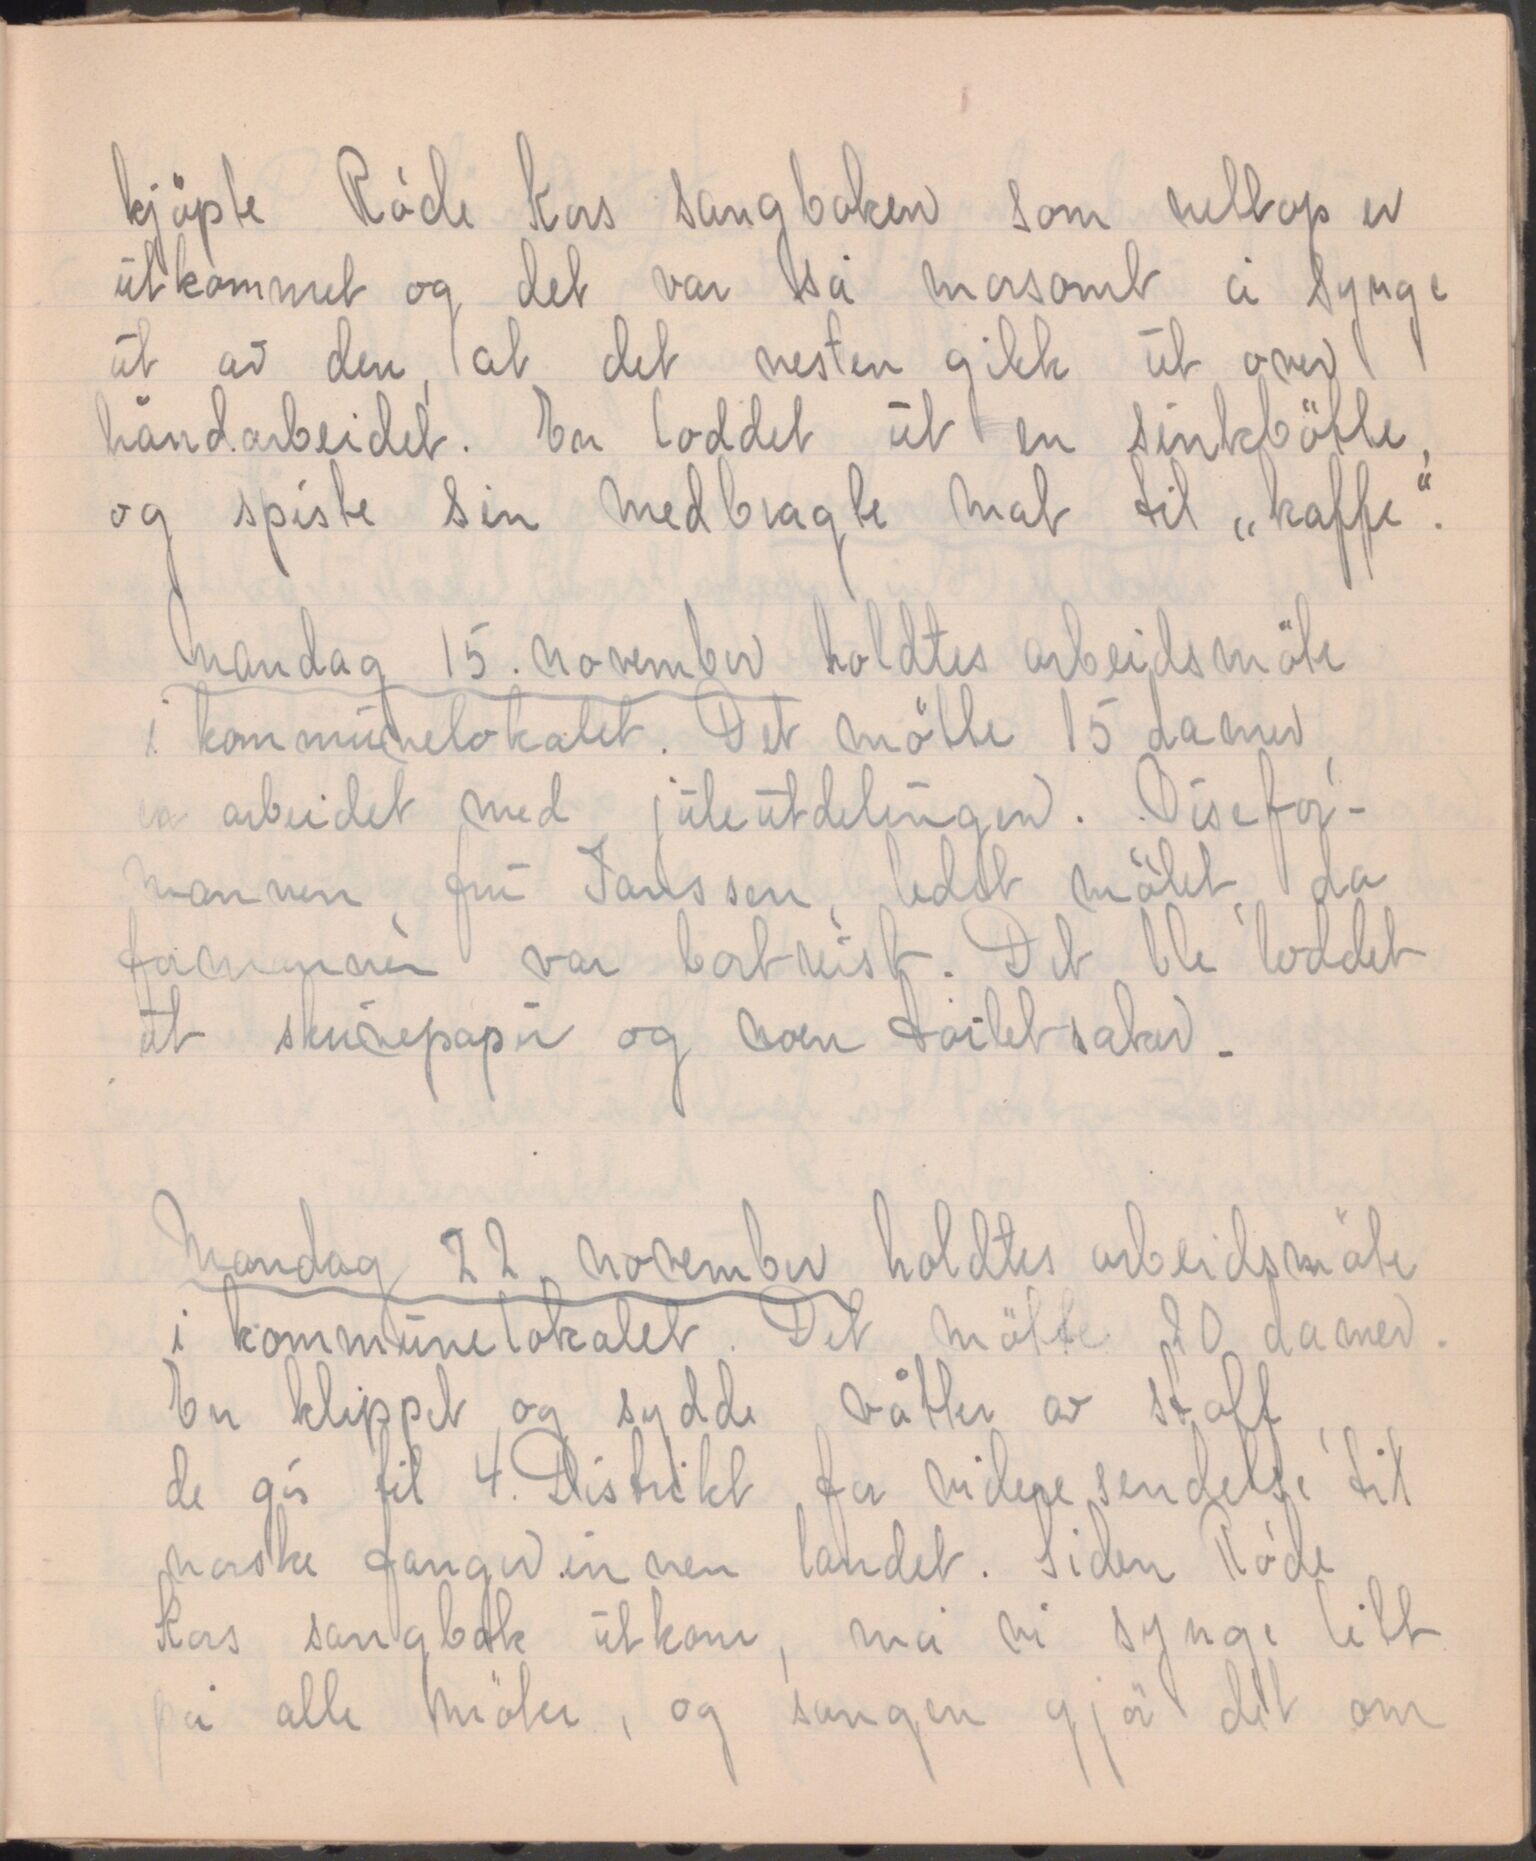 kjöpte Röde Kors sangboken som nettop er
utkommet og det var så morsomt å synge
ut av den, at det nesten gikk ut over
håndarbeidet. En loddet ut en sinkbötte,
og spiste sin medbragte mat til „kaffe“.
Mandag 15. november holdtes arbeidsmöte
i kommunelokalet. Det mötte 15 damer,
en arbeidet med juleutdelingen. Visefor-
mannen fru Janssen, ledet mötet, da
formannen var bortreist. Det ble loddet
ut skurepapir og noen toiletsaker.
Mandag 22 november holdtes arbeidsmöte
i kommunelokalet. Det mötte 20 damer.
En klippet og sydde våtter av stoff,
de gis til 4. Distrikt for videresendelse til
norske fanger innen landet. Siden Röde
Kors sangbok utkom, må vi synge litt
på alle möter, og sangen gjör det om